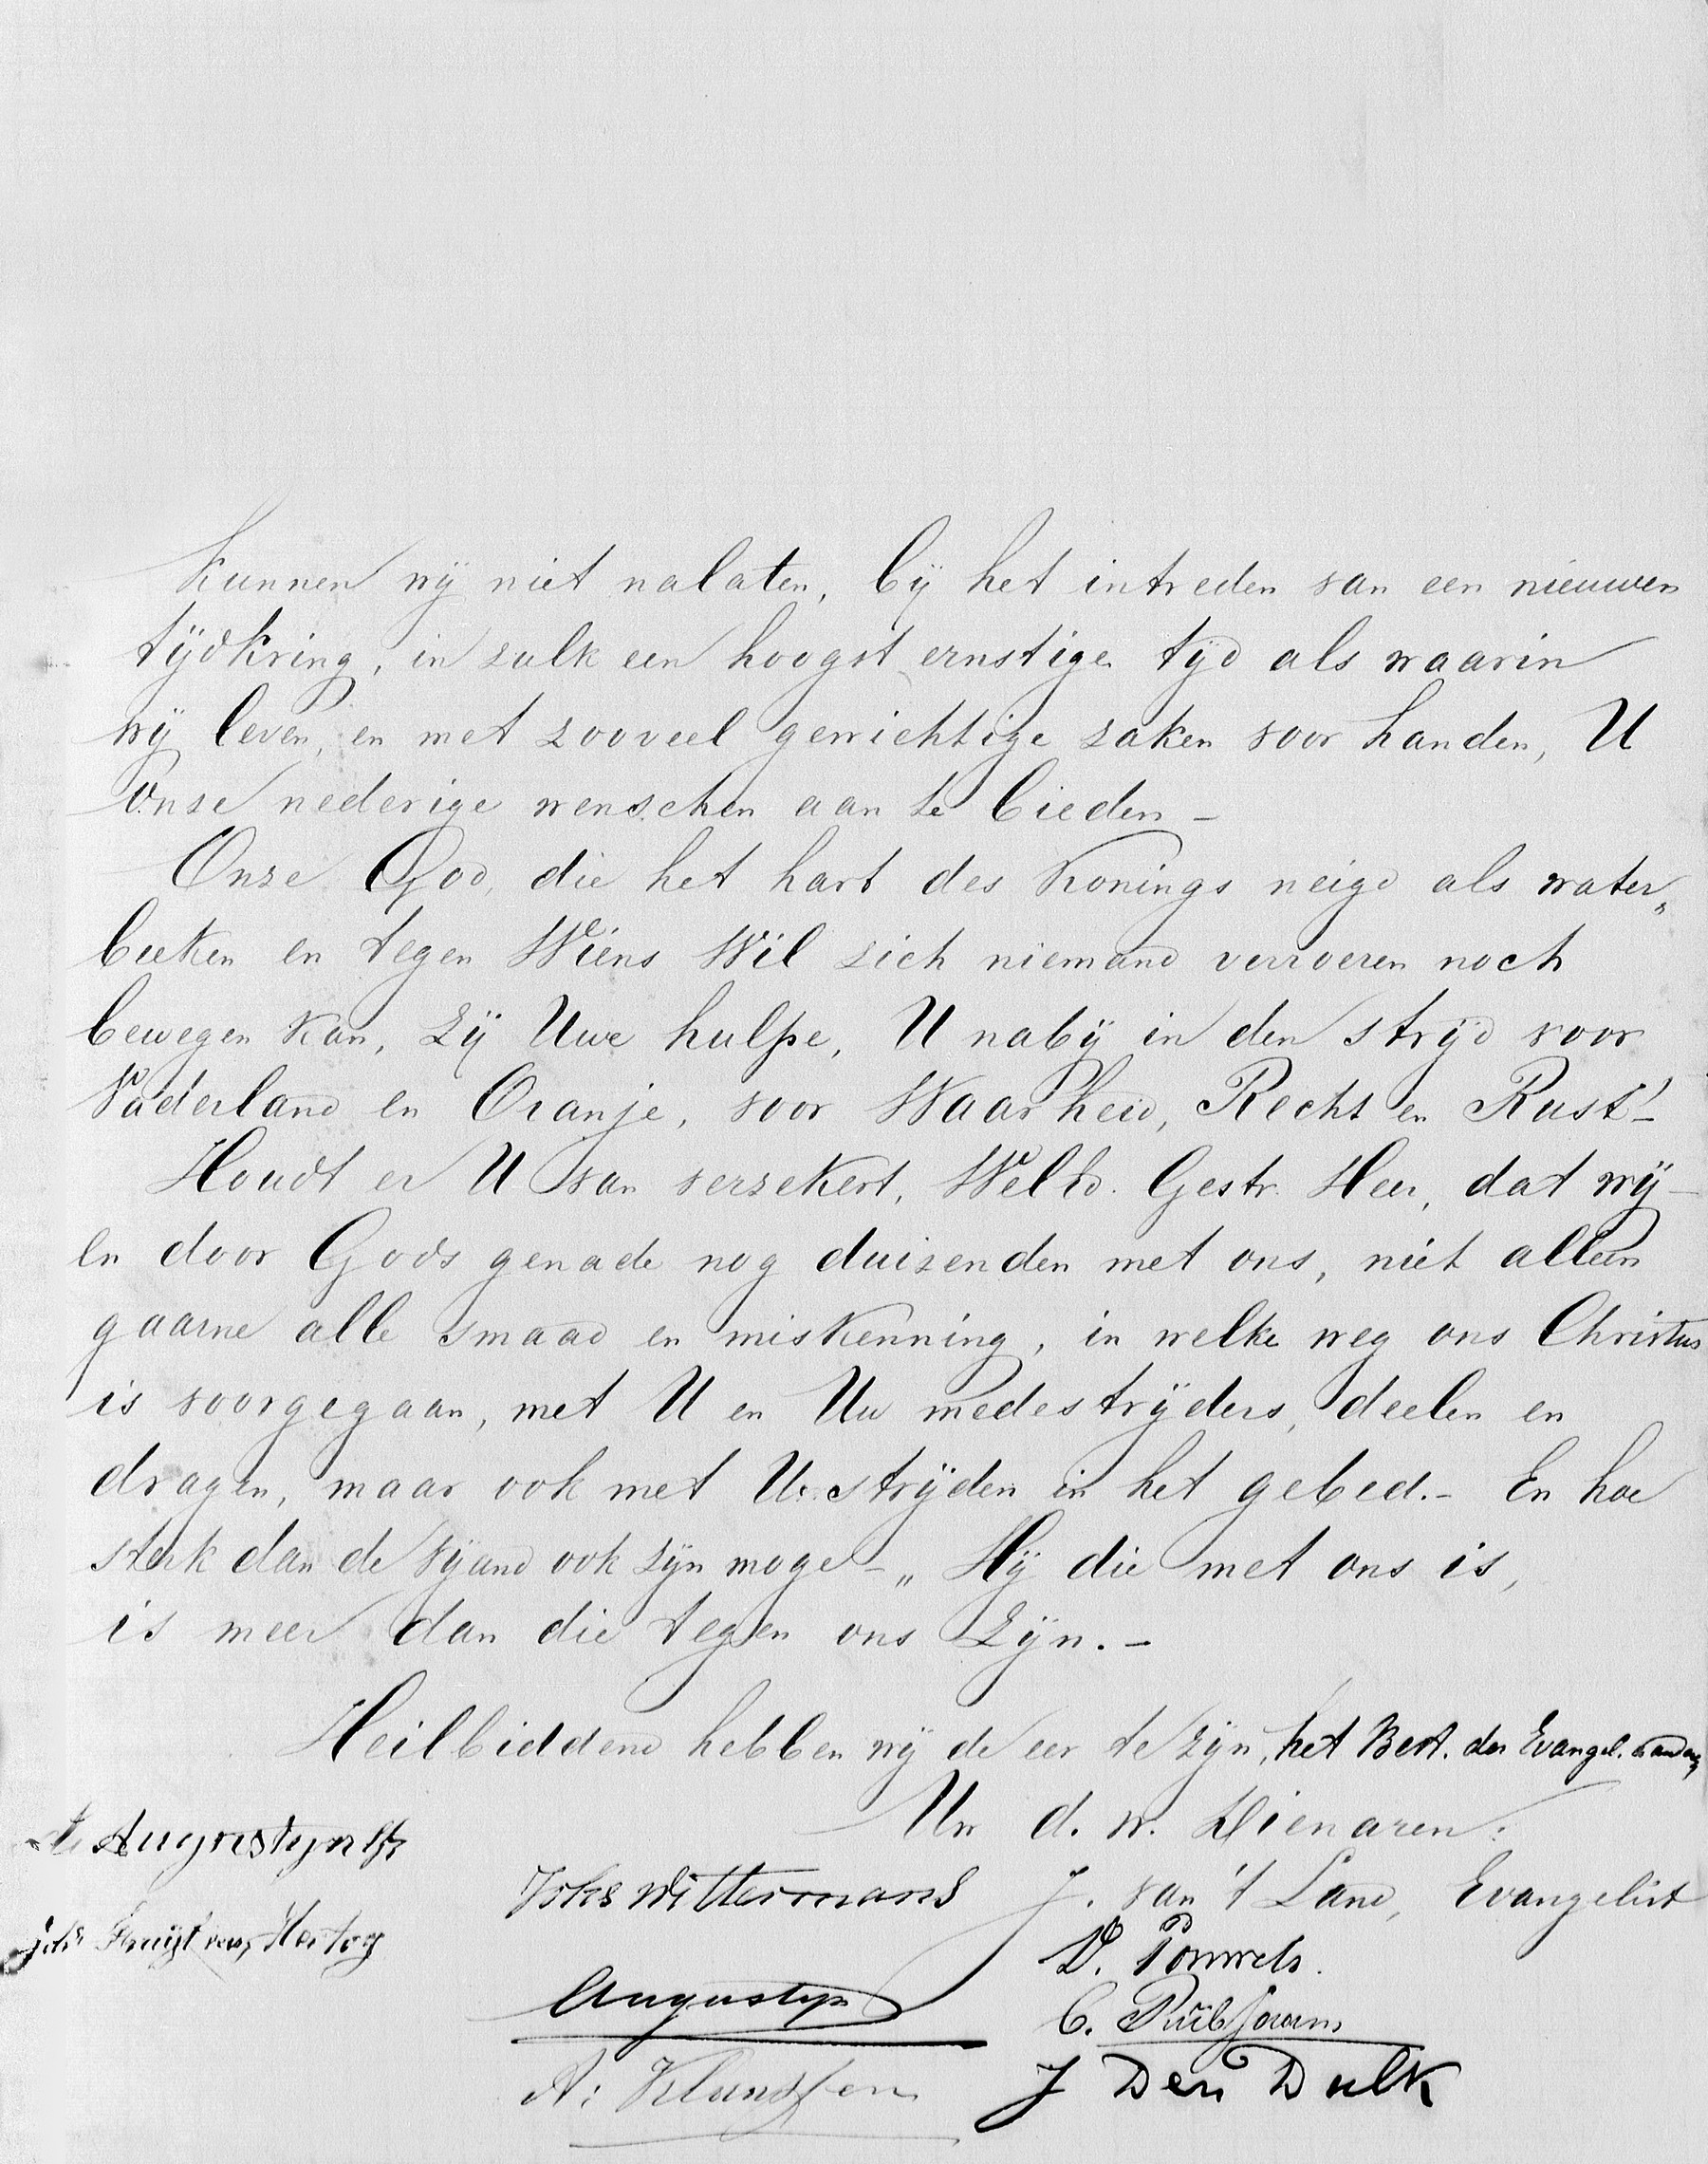 Kunnen wij niet nalaten, bij het intreden van een nieuwen
tijdkring, in zulk een hoogst ernstige tijd als waarin
wij leven, en met zooveel gewichtige zaken voor handen, U
onze nederige wenschen aan te bieden –
Onze God, die het hart des Konings neigd als water„
beeken en tegen Wiens Wil zich niemand verroeren noch
bewegen kan, zij Uwe hulpe, U nabij in den strijd voor
Vaderland en Oranje, voor Waarheid, Recht en Rust! –
Houdt er U van verzekert, WelEd. Gestr. Heer, dat wij –
en door Gods genade nog duizenden met ons, niet alleen
gaarne alle smaad en miskenning, in welke weg ons Christus
is voorgegaan, met U en Uw medestrijders, deelen en
dragen, maar ook met U strijden in het gebed. – En hoe
sterk dan de vijand ook zijn moge – „Hij die met ons is,
is meer dan die tegen ons zijn. –
Heilbiddend hebben wij de eer te zijn, het Best. der Evangel.
Uw d. w. Dienaren:
Augustijn
Johs Wittermans J. van 't Land, Evangelist
den Hertog
D. Pouwels.
Augustyn
C.
A: Klunssen J Den Dulk